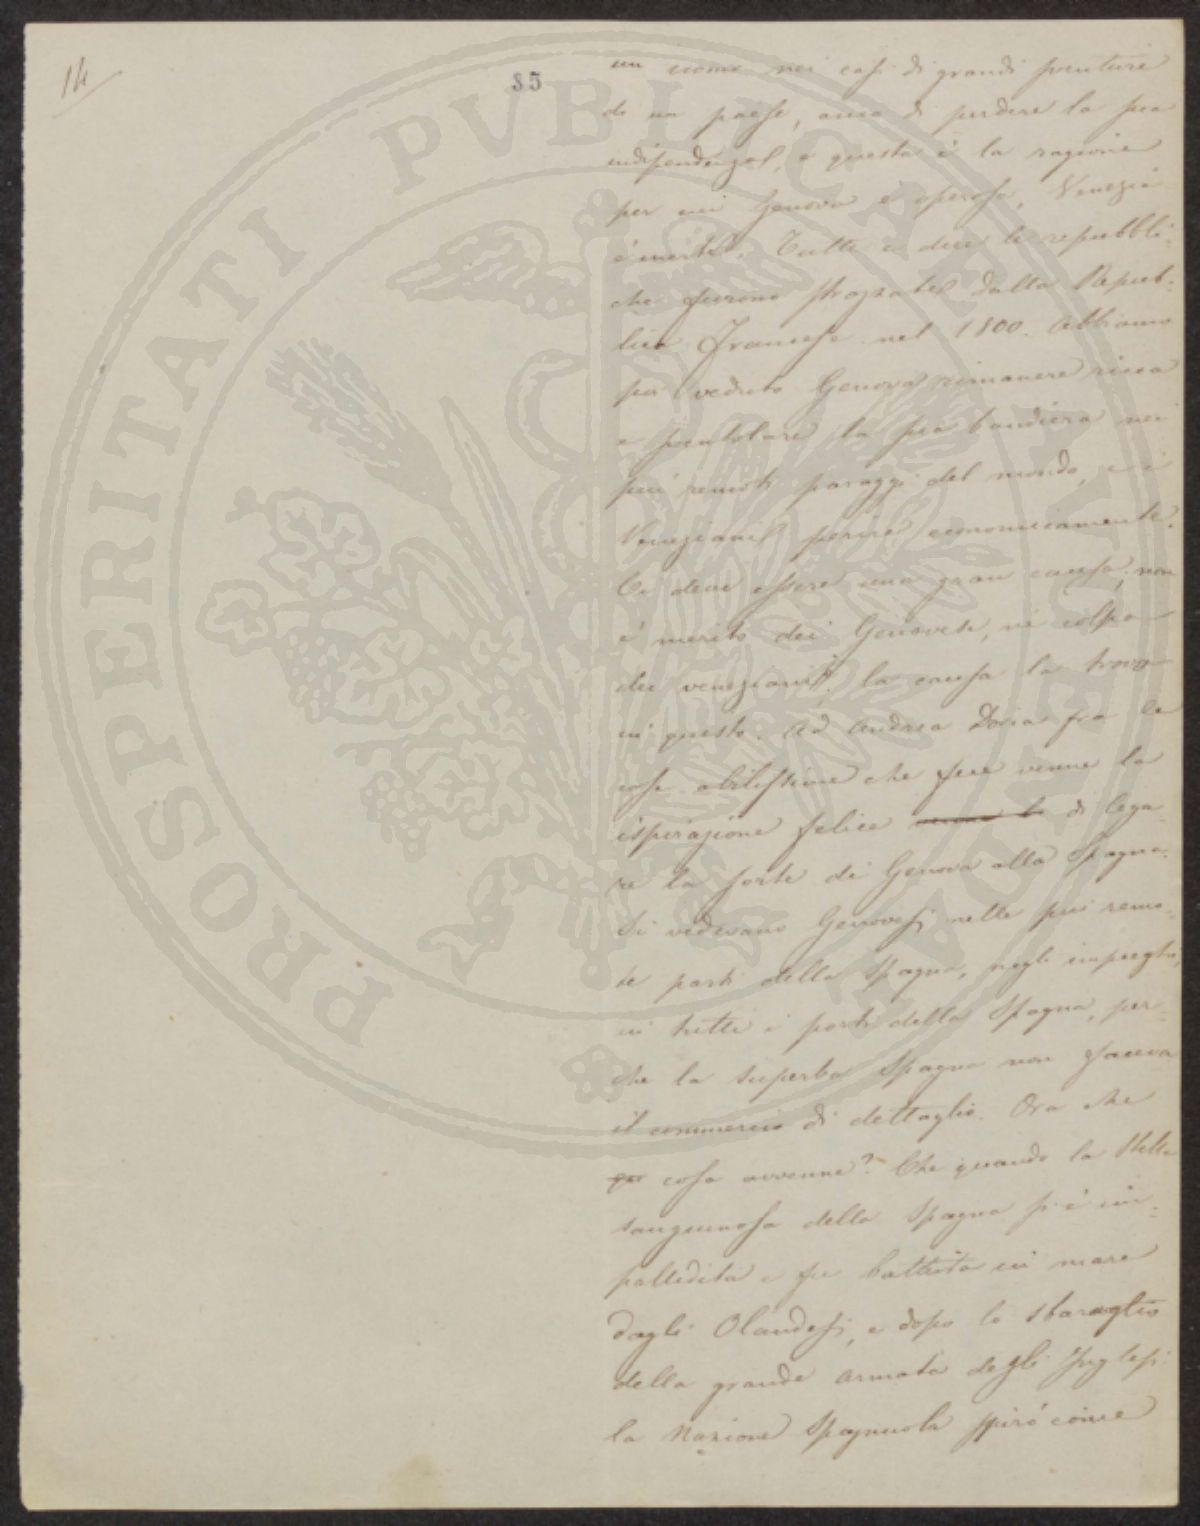 14
85
PROSPERITATI PVBLICAE AVGENDAE
un uomo nei casi di grandi sventure
di un paese, ansia di perdere la sua
indipendenza, e questa è la ragione
per cui Genova è operosa, Venezia
è inerte. Tutte e due le repubbli-
che furono strozzate dalla Repub-
lica Francese nel 1800. Abbiamo
poi veduto Genova rimanere ricca
e sventolare la sua bandiera nei
più remoti paraggi del mondo, e i
Veneziani perire economicamente.
Ci deve essere una gran causa; non
è merito dei Genovesi, nè colpa
dei veneziani; la causa la trovo
in questo. Ad Andrea Doria fra le
cose abilissime che fece venne la
ispirazione felice di lega-
re la sorte di Genova alla Spagna.
Si vedevano Genovesi nelle più remo-
te parti della Spagna, negli impieghi,
in tutti i porti della Spagna, per-
che la superba Spagna non faceva
il commercio di dettaglio. Ora che
cosa avvenne? Che quando la stella
sanguinosa della Spagna si è im-
pallidita e fu battuta in mare
dagli Olandesi, e dopo lo sbaraglio
della grande armata degli Inglesi
la Nazione Spagnuola spirò come